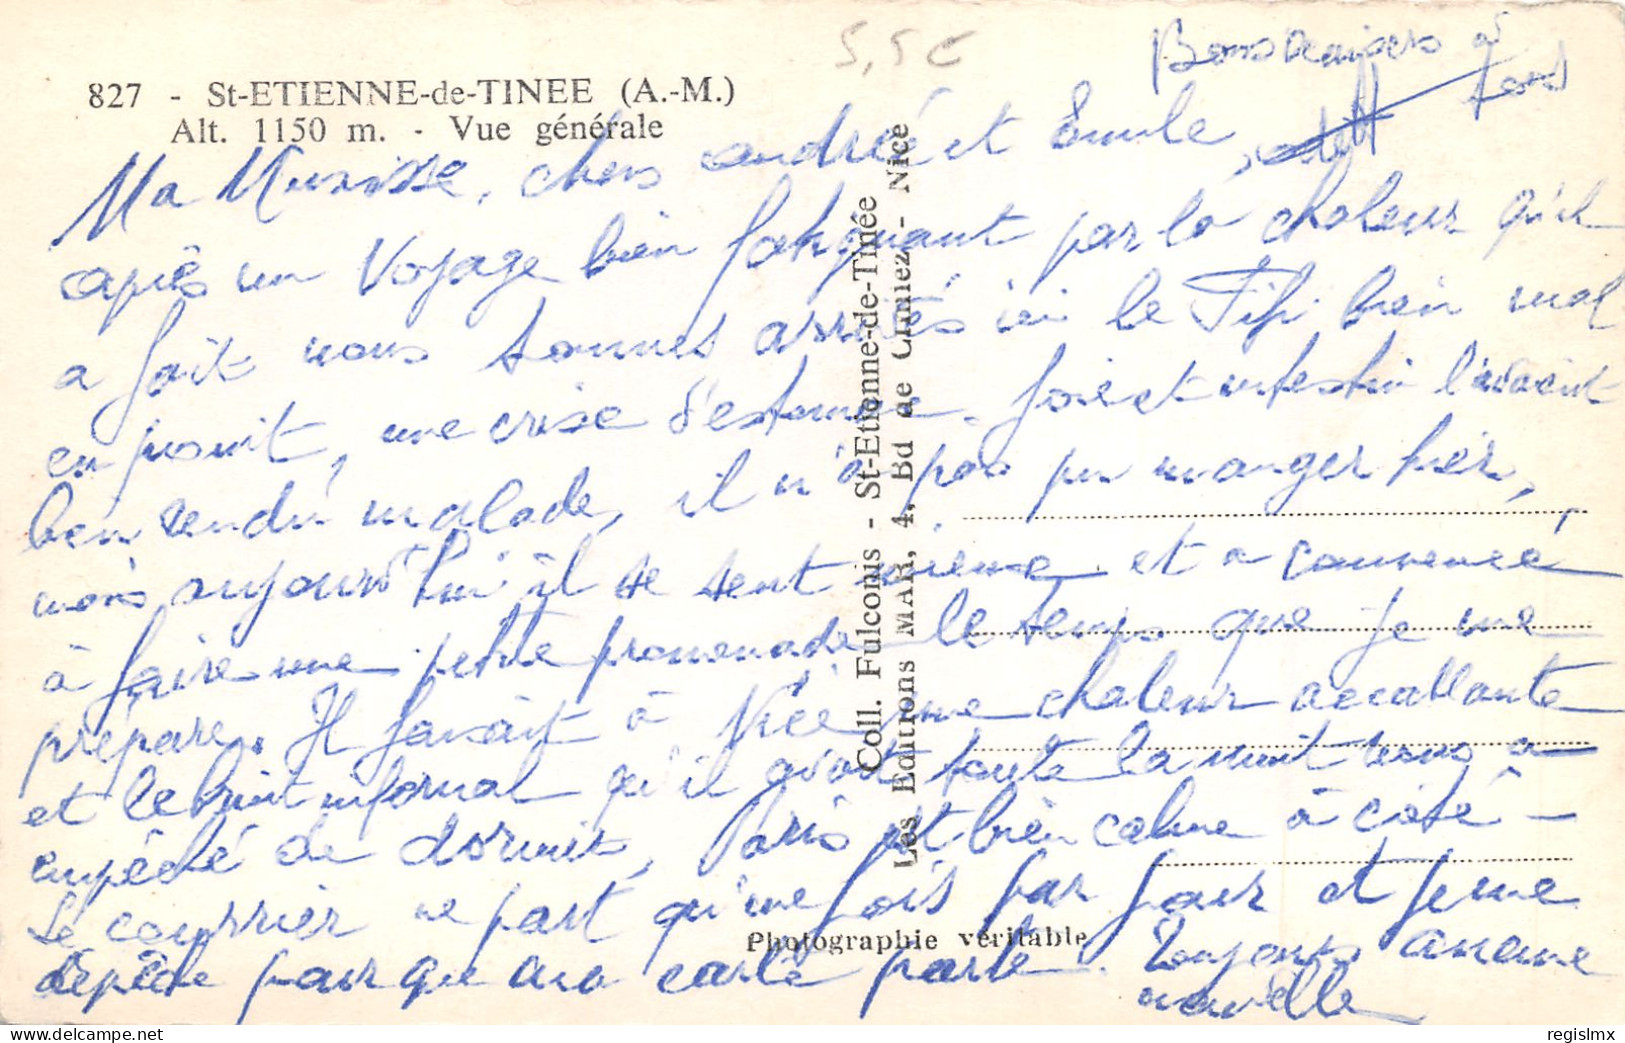 5,5 €
Bons baisers à
tous
827 - St-ETIENNE-de-TINEE (A.-M.)
Alt. 1150 m. - Vue générale
Ma, chers andrée et Emile,
après un voyage bien fatiguant par la chaleur qu'il
a fait nous sommes arrivés ici le Fifi bien mal
en point, une crise d'estomac. foie et intestin l'avaient
bien rendu malade, il n'a pas pu manger hier,
mais aujourd'hui il se sent mieux et a commencé
à faire une petite promenade le temps que je me
prépare. Il faisait à Nice une chaleur accablante
et le bruit infernal qu'il avait toute la nuit nous a
empêché de dormir, Paris est bien calme à côté -
Le courrier ne part qu'une fois par jour et je me
dépêche pour que ma carte parte. Toujours aucune
nouvelle
Coll. Fulconis - St-Etienne-de-Tinée
Les Editions MAR, 4, Bd de Cimiez - Nice
Photographie véritable
regislmx